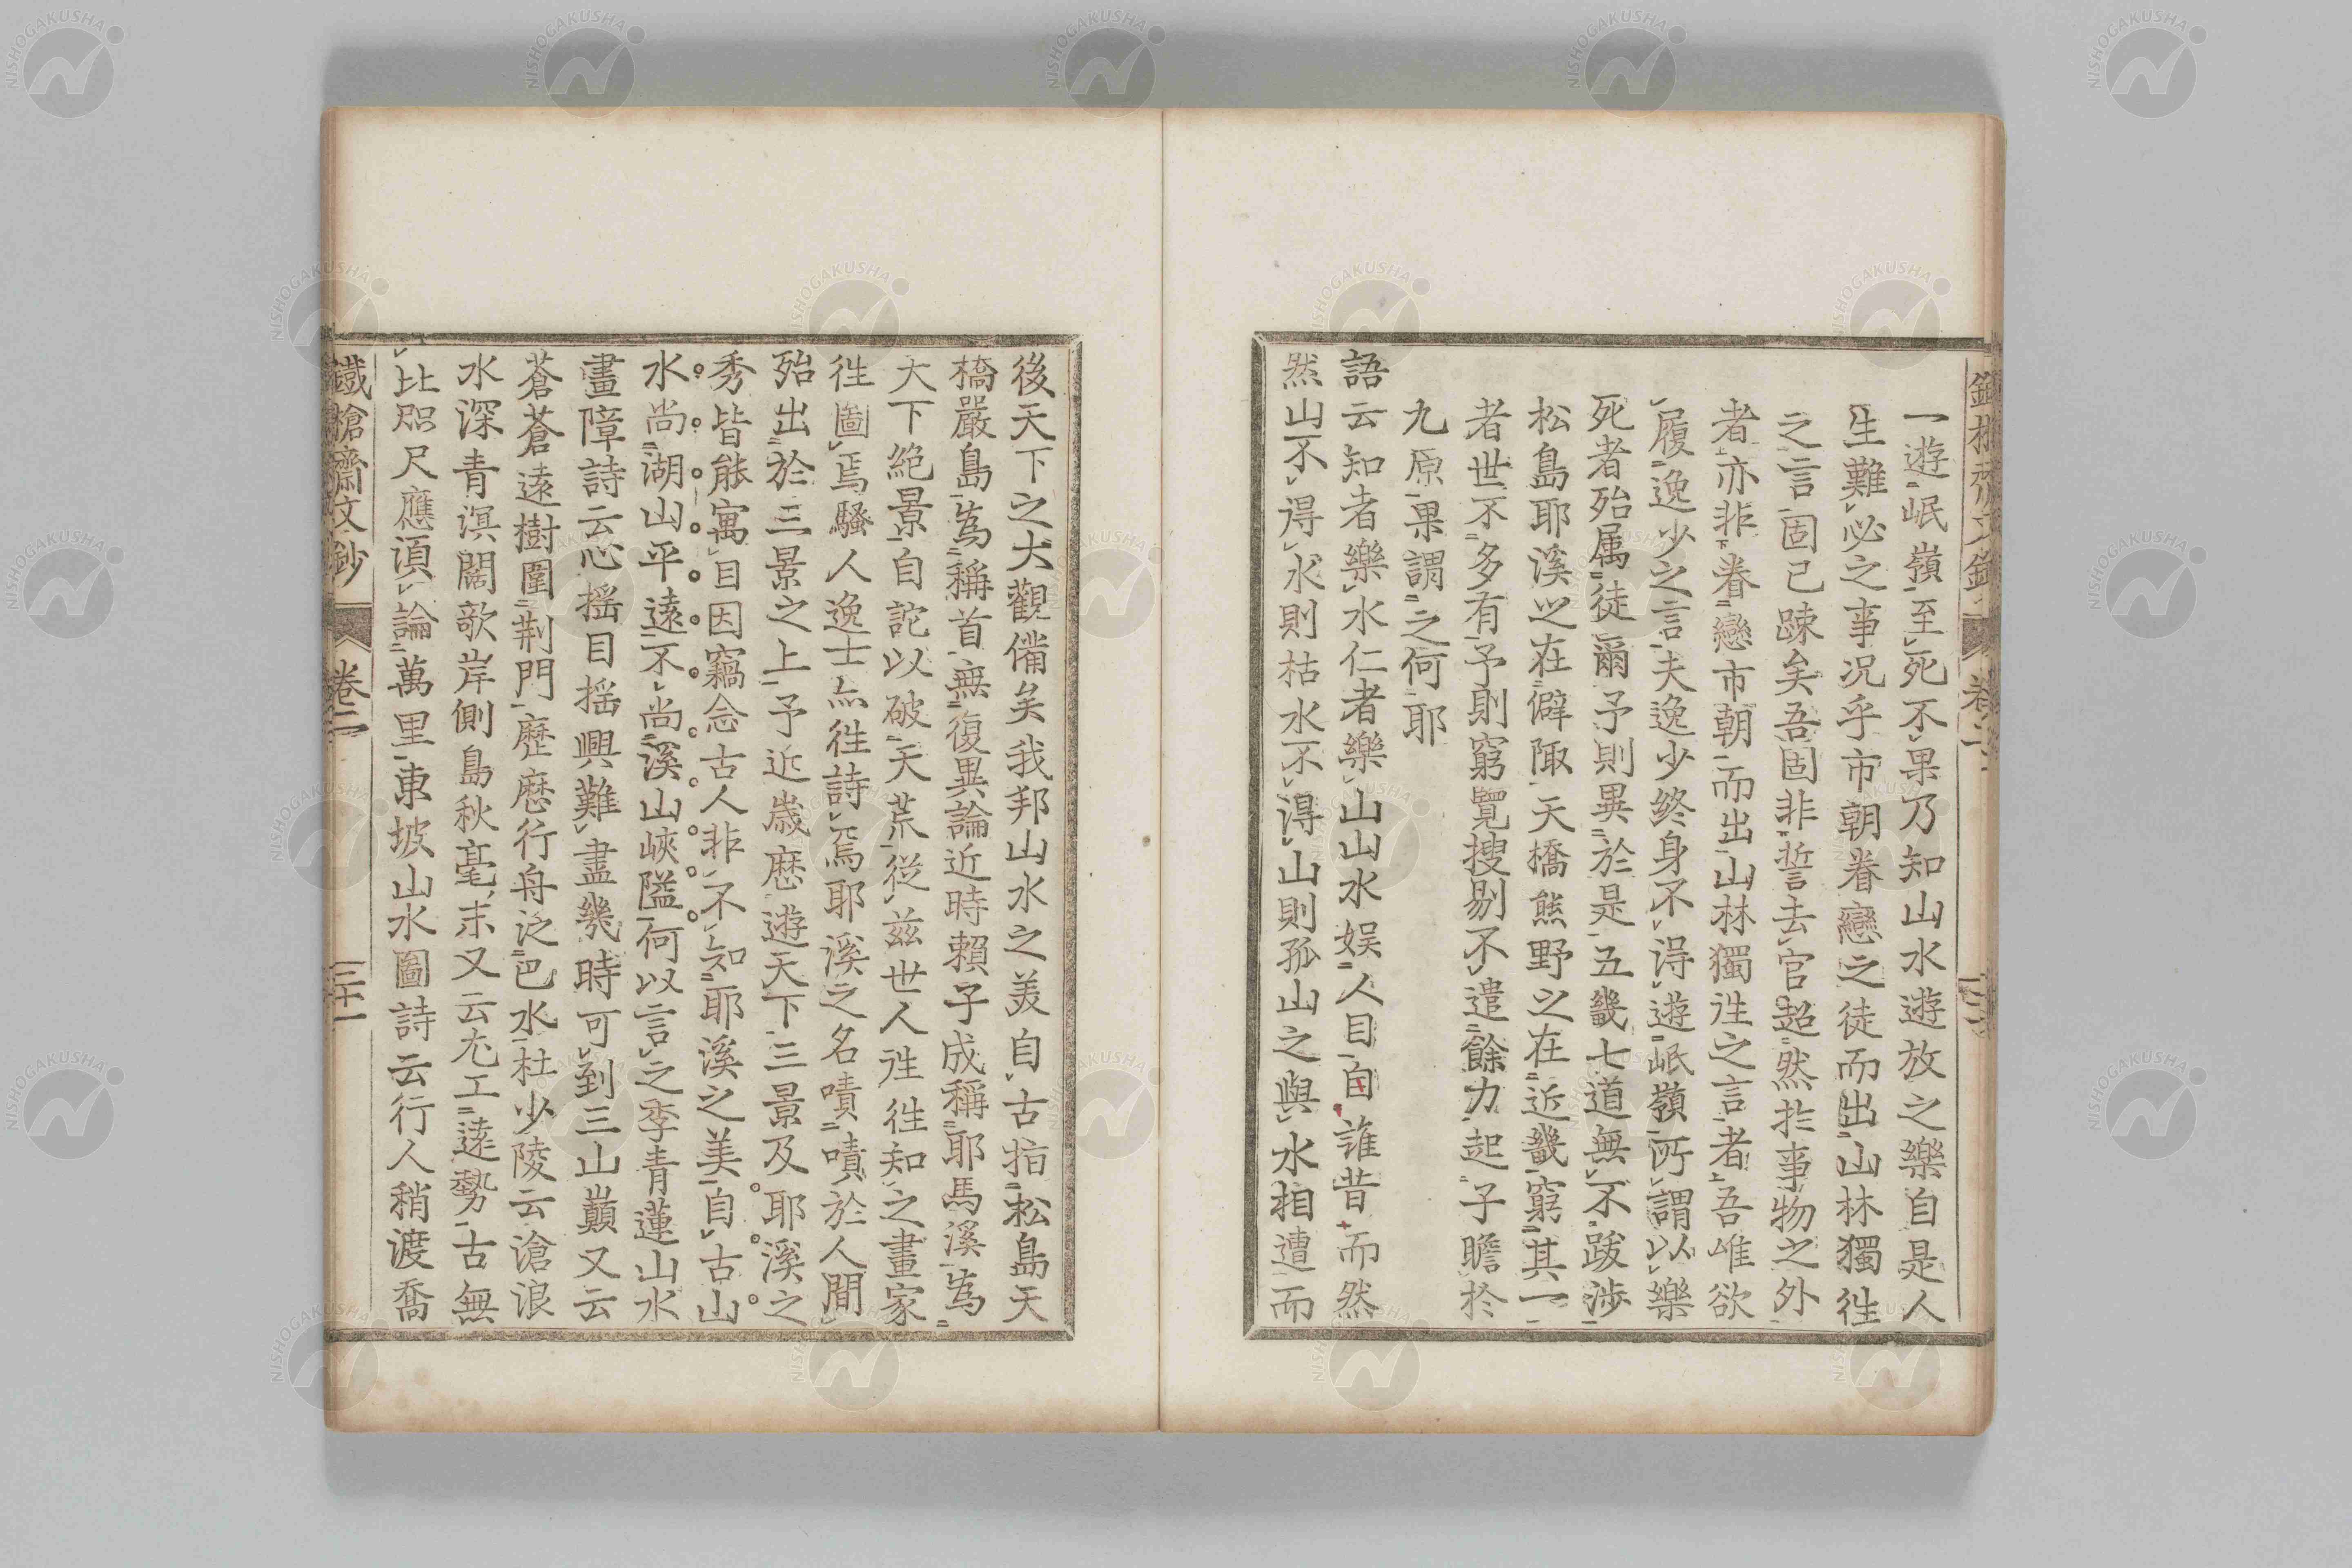 一遊岷嶺至死不果乃知山水遊放之樂自是人
生難必之事况乎市朝眷戀之徒而出山林獨徃
之言固已疎矣吾固非誓去官超然於事物之外
者亦非眷戀市朝而出山林獨徃之言者吾唯欲
履逸少之言夫逸少終身不得遊岷嶺所謂以樂
死者殆属徒爾予則異於是五畿七道無不跋渉
松島耶溪之在僻陬天橋熊野之在近畿窮其一
者世不多有予則窮覽搜剔不遣餘力起子瞻於
九原果謂之何耶
語云知者樂水仁者樂山山水娱人目自誰昔而然
然山不得水則枯水不得山則孤山之與水相遭而
後天下之大觀備矣我邦山水之美自古指松島天
橋嚴島為稱首無復異論近時頼子成稱耶馬溪為
大下絶景自詑以破天荒從兹世人徃徃知之畫家
徃圖焉騷人逸士亦徃詩焉耶溪之名嘖嘖於人間
殆出於三景之上予近嵗歴遊天下三景及耶溪之
秀皆能寓目因竊念古人非不知耶溪之美自古山
水尚湖山平遠不尚溪山峽隘何以言之李青蓮山水
畫障詩云心揺目揺興難盡幾時可到三山巓又云
蒼蒼遠樹圍荆門歴歴行舟泛巴水杜少陵云滄浪
水深青溟闊歌岸側島秋毫末又云尤工遠勢古無
比咫尺應須論萬里東坡山水圖詩云行人稍渡喬
鐵槍齋文鈔 卷二 三十一